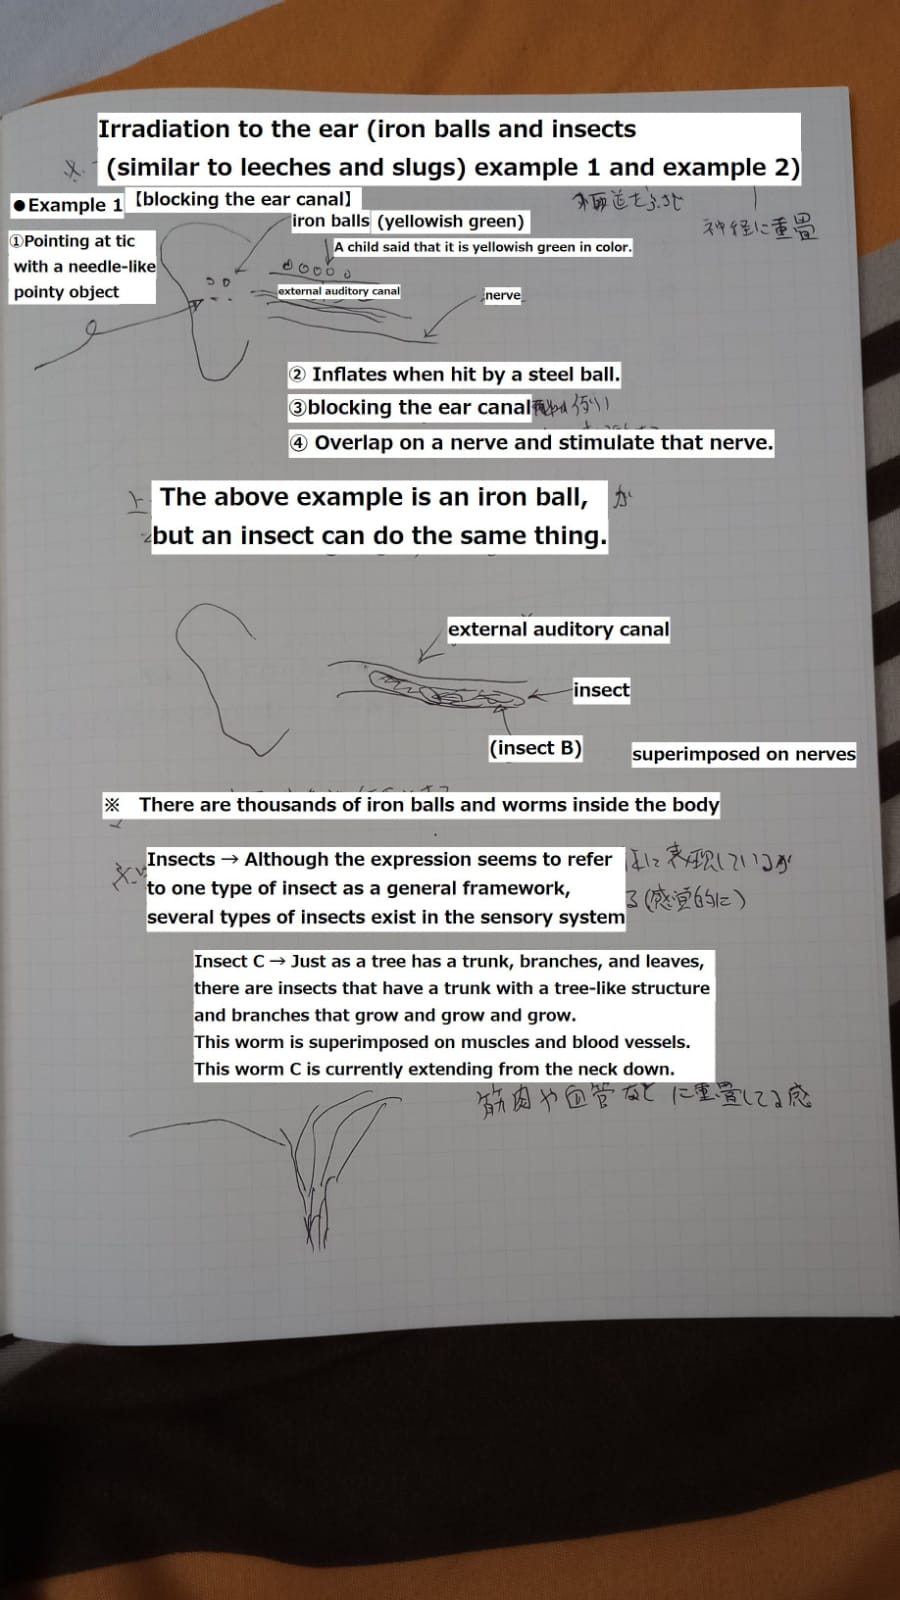 Irradiation to the ear (iron balls and insects
(similar to leeches and slugs) example 1 and example 2)
●Example 1 【blocking the ear canal】
神経に重畳
iron balls (yellowish green)
①Pointing at tic
with a needle-like
pointy object
A child said that it is yellowish green in color.
external auditory canal
nerve
② Inflates when hit by a steel ball.
③blocking the ear canal
④ Overlap on a nerve and stimulate that nerve.
上 The above example is an iron ball, が
but an insect can do the same thing.
external auditory canal
insect
(insect B)
superimposed on nerves
※ There are thousands of iron balls and worms inside the body
Insects → Although the expression seems to refer に表現しているが
to one type of insect as a general framework, る(感覚的に)
several types of insects exist in the sensory system
Insect C → Just as a tree has a trunk, branches, and leaves,
there are insects that have a trunk with a tree-like structure
and branches that grow and grow and grow.
This worm is superimposed on muscles and blood vessels.
This worm C is currently extending from the neck down.
筋肉や血管などに重畳してる感